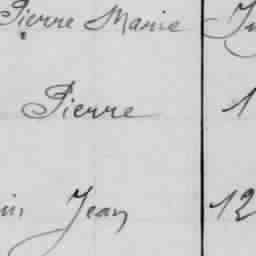 Pierre Marie
Pierre 1
Jean 12